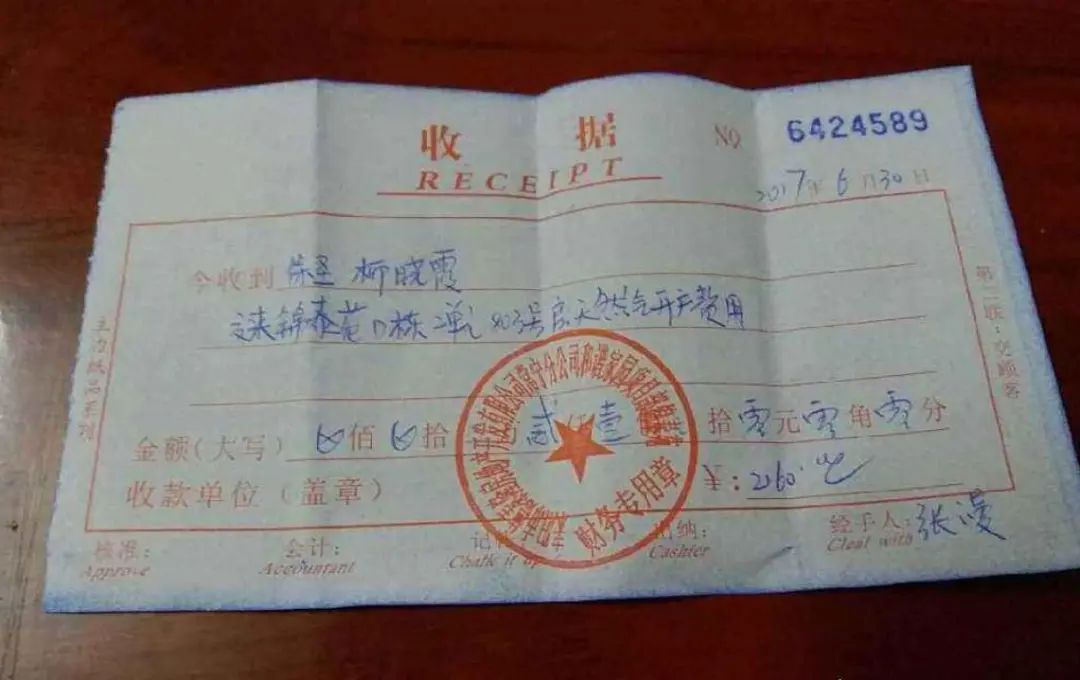 收据
№ 6424589
RECEIPT
2017年6月30日
今收到 柳晓霞
交来锦泰苑D栋 房天然气开户费用
金额(大写) 佰 拾 贰仟壹 拾零元零角零分
收款单位(盖章) ¥:2160
核准: 会计: 记 纳: 经手人:张漫
Approve Accountant Chalk it up Cashier Cleal with
第二联:交顾客
财务专用章